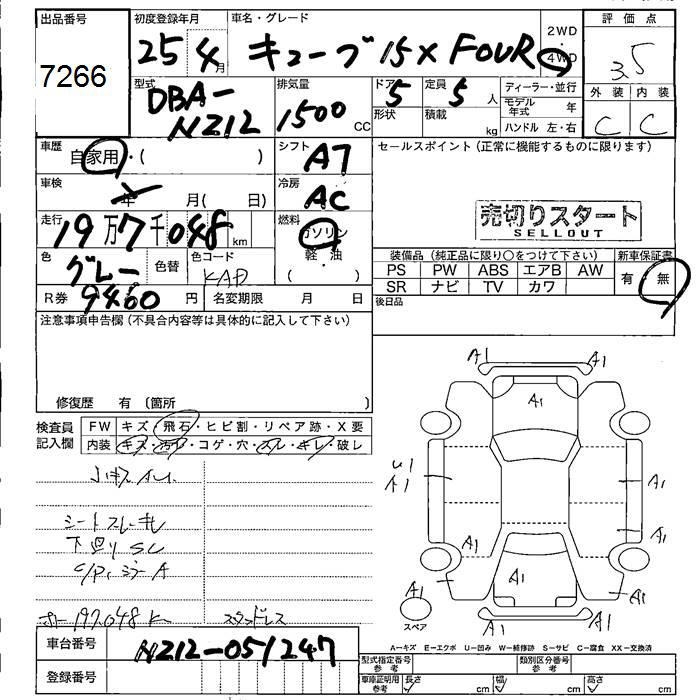 出品番号
7266
初度登録年月
25年4月
車名・グレード
キューブ 15X FOUR
2WD
・
4WD
評価点
3.5
外装 内装
C C
型式
DBA-
NZ12
排気量
1500 CC
ドア
5
形状
定員
5人
積載
kg
ディーラー・並行
モデル年式 年
ハンドル 左・右
車歴
自家用・( )
シフト
A7
セールスポイント (正常に機能するものに限ります)
車検
年 月( 日)
冷房
AC
売切りスタート
SELLOUT
走行
19万7千048 km
燃料
ガソリン
軽・油
( )
色
グレー
色替
色コード
KAD
装備品 (純正品に限り○をつけて下さい)
新車保証書
PS PW ABS エアB AW
有 無
SR ナビ TV カワ
R券 9460円
名変期限 月 日
後日品
注意事項申告欄 (不具合内容等は具体的に記入して下さい)
修復歴 有 (箇所 )
検査員
記入欄
FW キズ・飛石・ヒビ割・リペア跡・X要
内装 キズ・汚れ・コゲ・穴・スレ・キレ・破レ
シートスレ・キレ
下廻り SC
C/P, ミラーA
197,048K
スタッドレス
A1 A1
A1
U1
A1
A1
A1
A1
A1
A1
A1
A1
A1
A1
スペア
A=キズ E=エクボ U=凹み W=補修跡 S=サビ C=腐食 XX=交換済
車台番号
NZ12-051247
登録番号
型式指定番号
参考
類別区分番号
参考
車庫証明用
参考
長さ cm
幅 cm
高さ cm